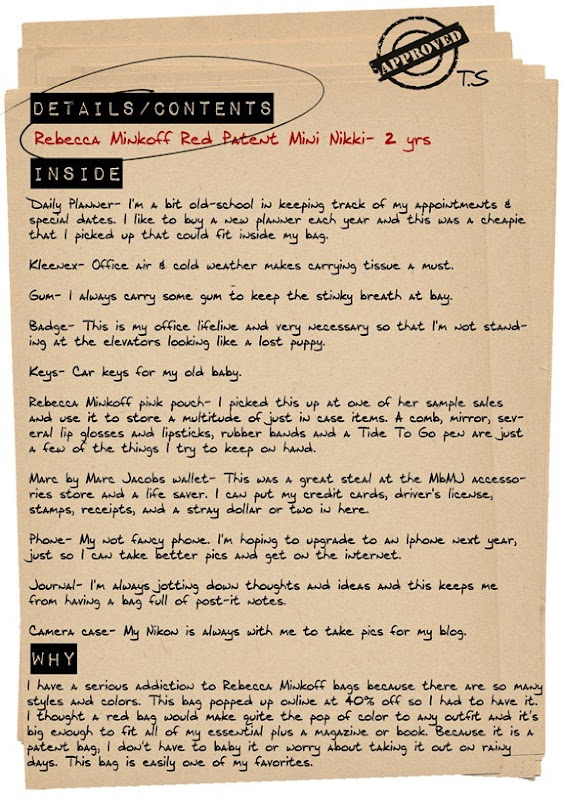 APPROVED
T.S
DETAILS/CONTENTS
Rebecca Minkoff Red Patent Mini Nikki- 2 yrs
INSIDE
Daily Planner- I'm a bit old-school in keeping track of my appointments &
special dates. I like to buy a new planner each year and this was a cheapie
that I picked up that could fit inside my bag.
Kleenex- Office air & cold weather makes carrying tissue a must.
Gum- I always carry some gum to keep the stinky breath at bay.
Badge- This is my office lifeline and very necessary so that I'm not stand-
ing at the elevators looking like a lost puppy.
Keys- Car keys for my old baby.
Rebecca Minkoff pink pouch- I picked this up at one of her sample sales
and use it to store a multitude of just in case items. A comb, mirror, sev-
eral lip glosses and lipsticks, rubber bands and a Tide To Go pen are just
a few of the things I try to keep on hand.
Marc by Marc Jacobs wallet- This was a great steal at the MbMJ accesso-
ries store and a life saver. I can put my credit cards, driver's license,
stamps, receipts, and a stray dollar or two in here.
Phone- My not fancy phone. I'm hoping to upgrade to an Iphone next year,
just so I can take better pics and get on the internet.
Journal- I'm always jotting down thoughts and ideas and this keeps me
from having a bag full of post-it notes.
Camera case- My Nikon is always with me to take pics for my blog.
WHY
I have a serious addiction to Rebecca Minkoff bags because there are so many
styles and colors. This bag popped up online at 40% off so I had to have it.
I thought a red bag would make quite the pop of color to any outfit and it's
big enough to fit all of my essential plus a magazine or book. Because it is a
patent bag, I don't have to baby it or worry about taking it out on rainy
days. This bag is easily one of my favorites.